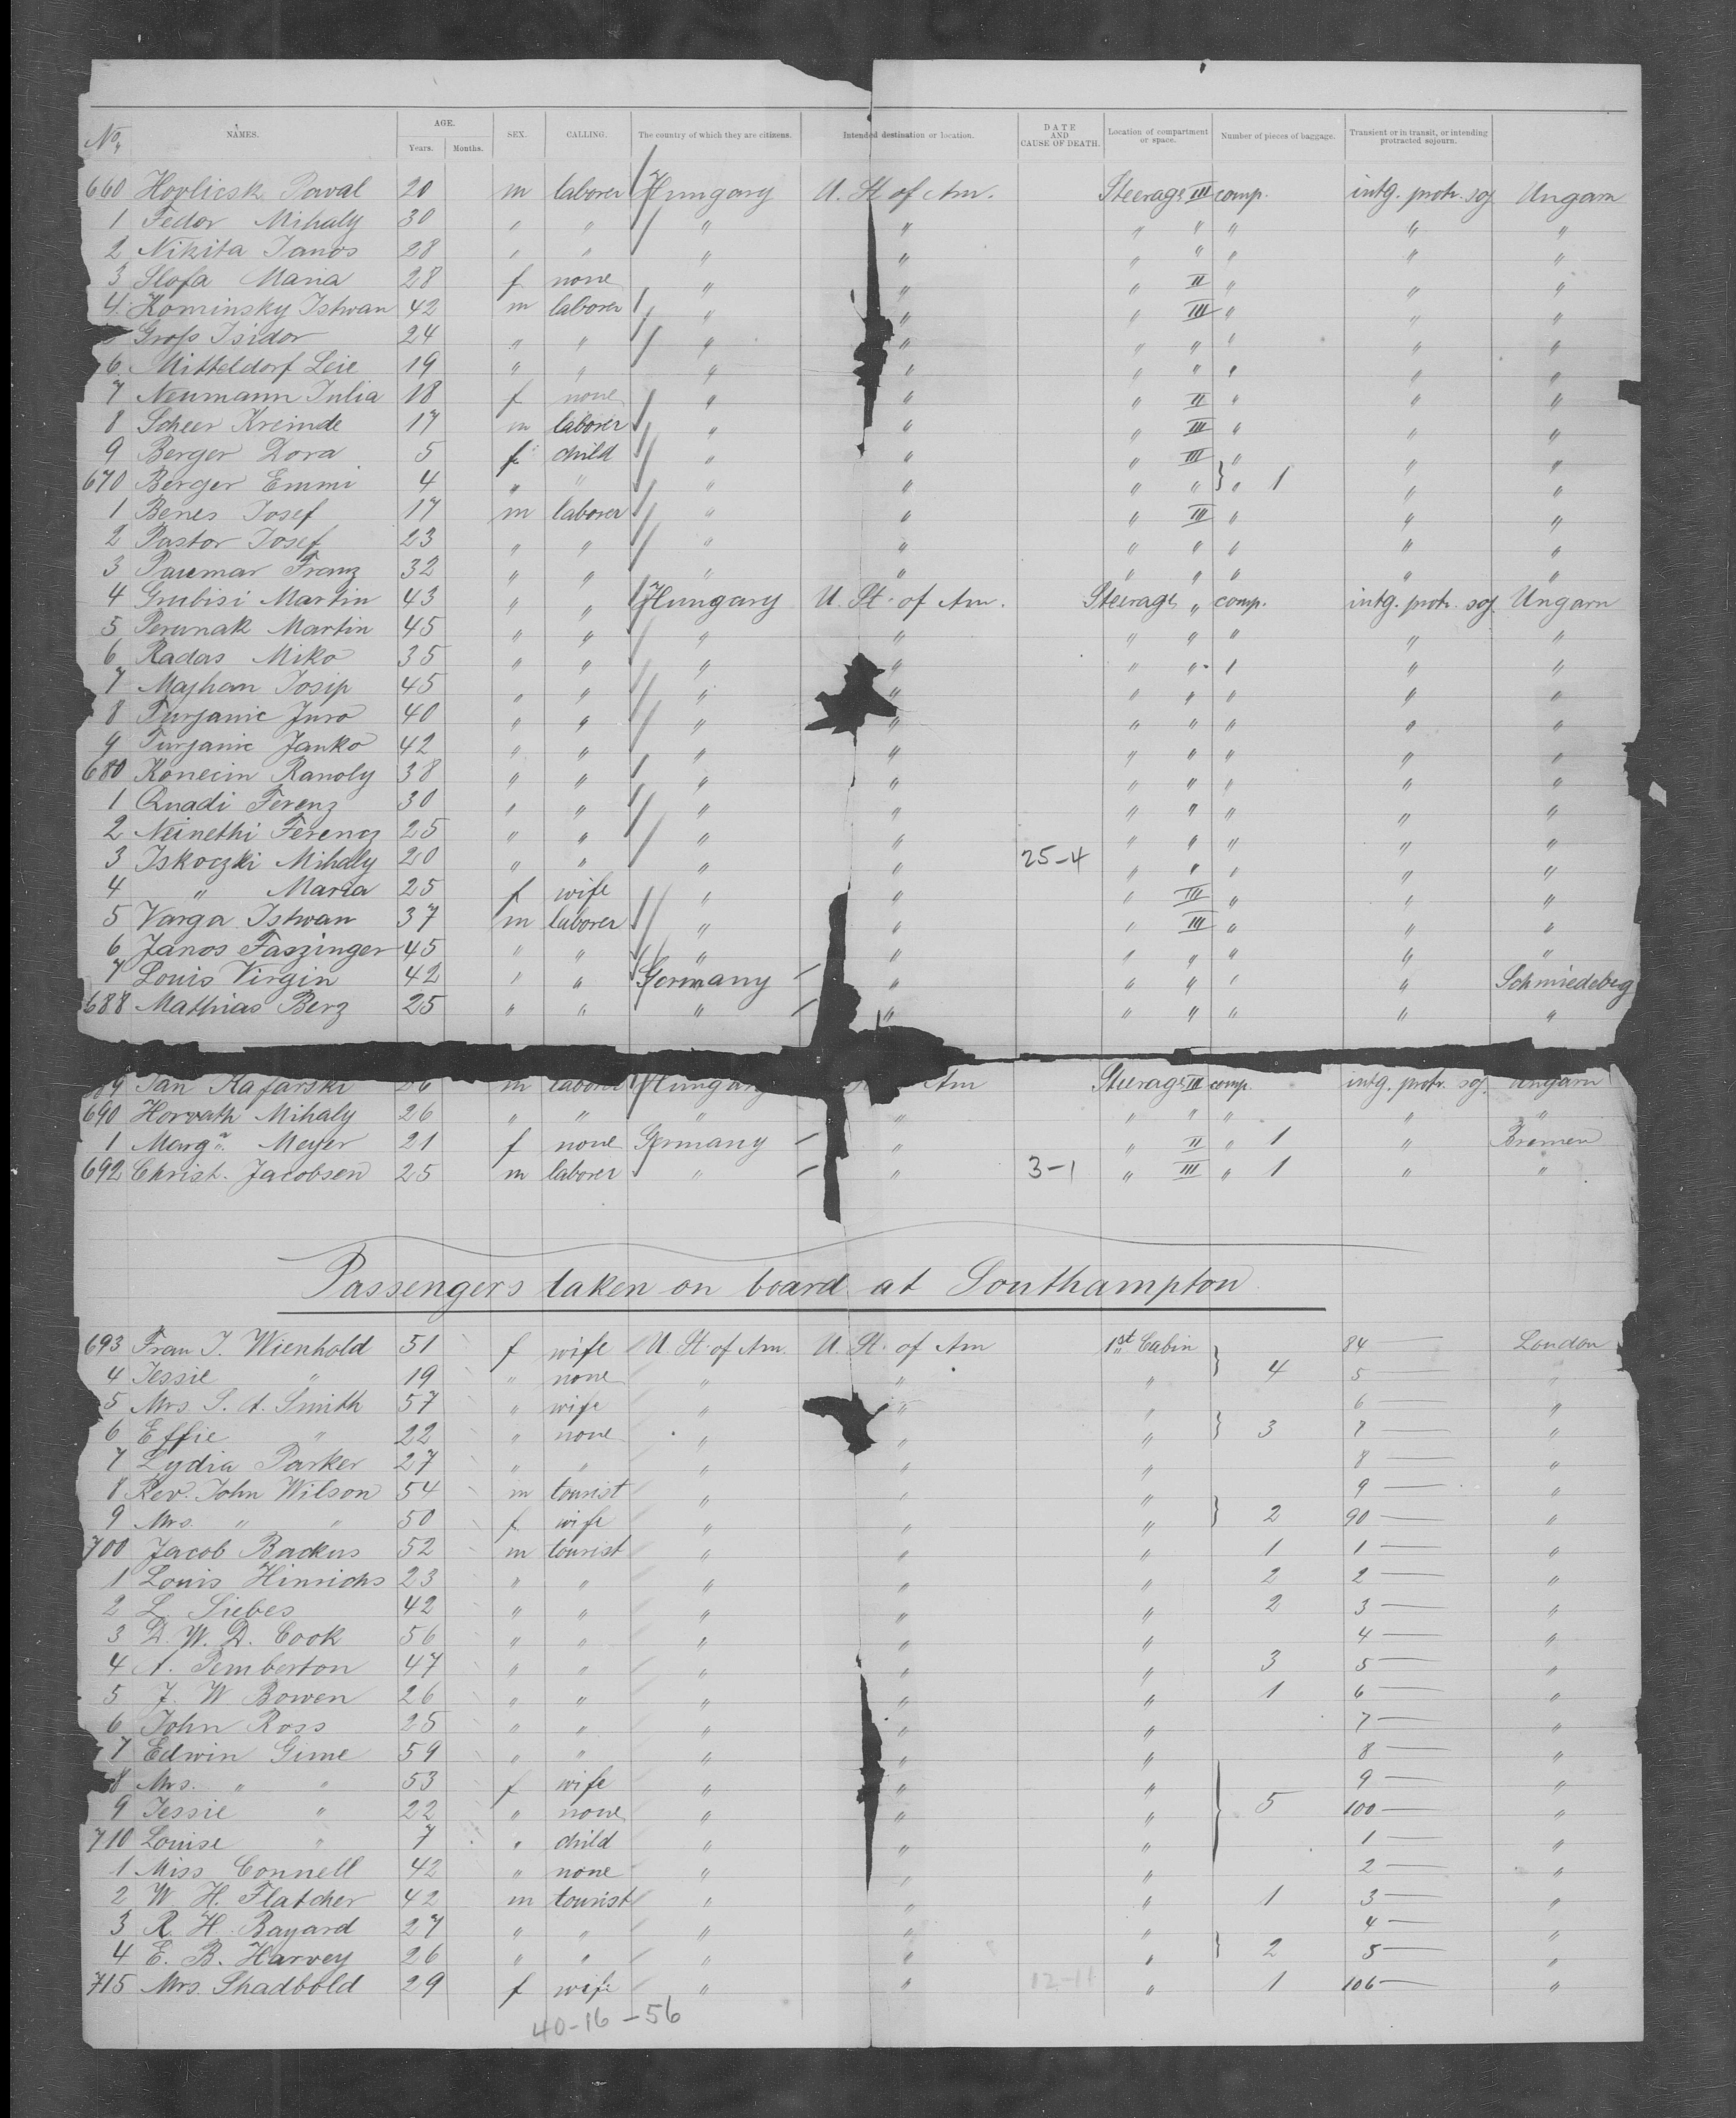 No. NAMES. AGE. Years. Months. SEX. CALLING. The country of which they are citizens. Intended destination or location. DATE AND CAUSE OF DEATH. Location of compartment or space. Number of pieces of baggage. Transient or in transit, or intending protracted sojourn.
660 Hovlicsk Paval 20 m laborer Hungary U. St of Am. Steerage III comp. intg. protr. soj Ungarn
1 Fedor Mihaly 30 " " " " " " " " "
2 Nikita Janos 28 " " " " " " " " "
3 Slofa Maria 28 f none " " " II " " "
4 Kominsky Istwan 42 m laborer " " " III " " "
Groß Isidor 24 " " " " " " " " "
6 Mitteldorf Leie 19 " " " " " " " " "
7 Neumann Julia 18 f none " " " II " " "
8 Scheer Kreinde 17 m laborer " " " III " " "
9 Berger Dora 5 f child " " " III " " "
670 Berger Emmi 4 " " " " " " " 1 " "
1 Benes Josef 17 m laborer " " " III " " "
2 Pastor Josef 23 " " " " " " " " "
3 Paumar Franz 32 " " " " " " " " "
4 Grubisi Martin 43 " " Hungary U. St. of Am. Steerage " comp. intg. protr. soj. Ungarn
5 Perunak Martin 45 " " " " " " " " "
6 Radas Miko 35 " " " " " " " " "
7 Majhan Josip 45 " " " " " " " " "
8 Turjanic Juro 40 " " " " " " " " "
9 Turjanic Janko 42 " " " " " " " " "
680 Konecin Ranoly 38 " " " " " " " " "
1 Quadi Ferenz 30 " " " " " " " " "
2 Neinethi Ferencz 25 " " " " " " " " "
3 Iskoczki Mihaly 20 " " " " 25-4 " " " " "
4 " Maria 25 f wife " " " III " " "
5 Varga Istwan 37 m laborer " " " III " " "
6 Janos Faszinger 45 " " " " " " " " "
7 Louis Virgin 42 " " Germany " " " " " Schmiedebeg
688 Mathias Berz 25 " " " " " " " " "
89 Jan Kafarski 26 m laborer Hungary Am Steerage III comp. intg. protr. soj. Ungarn
690 Horvath Mihaly 26 " " " " " " " " "
1 Marg. Meyer 21 f none Germany " " II " 1 " Bremen
692 Christ. Jacobsen 25 m laborer " " 3-1 " III " 1 " "
Passengers taken on board at Southampton
693 Frau J. Wienhold 51 f wife U. St. of Am. U. St. of Am 1st Cabin 84 — London
4 Jessie " 19 " none " " " 4 5 — "
5 Mrs. S. A. Smith 57 " wife " " " 6 — "
6 Effie " 22 " none " " " 3 7 — "
7 Lydia Parker 27 " " " " " 8 — "
8 Rev. John Wilson 54 m tourist " " " 9 — "
9 Mrs. " " 50 f wife " " " 2 90 — "
700 Jacob Backus 52 m tourist " " " 1 1 — "
1 Louis Hinrichs 23 " " " " " 2 2 — "
2 L. Siebes 42 " " " " " 2 3 — "
3 D. W. D. Cook 56 " " " " " 4 — "
4 A. Pemberton 47 " " " " " 3 5 — "
5 J. W Bowen 26 " " " " " 1 6 — "
6 John Ross 25 " " " " " 7 — "
7 Edwin Gime 59 " " " " " 8 — "
8 Mrs. " " 53 f wife " " " 9 — "
9 Jessie " 22 " none " " " 5 100 — "
710 Louise " 7 " child " " " 1 — "
1 Miss Connell 42 " none " " " 2 — "
2 W. H. Flatcher 42 m tourist " " " 1 3 — "
3 R. H. Bayard 27 " " " " " 4 — "
4 E. B. Harvey 26 " " " " " 2 5 — "
715 Mrs. Shadbold 29 f wife " " 12-11 " 1 106 — "
40-16-56